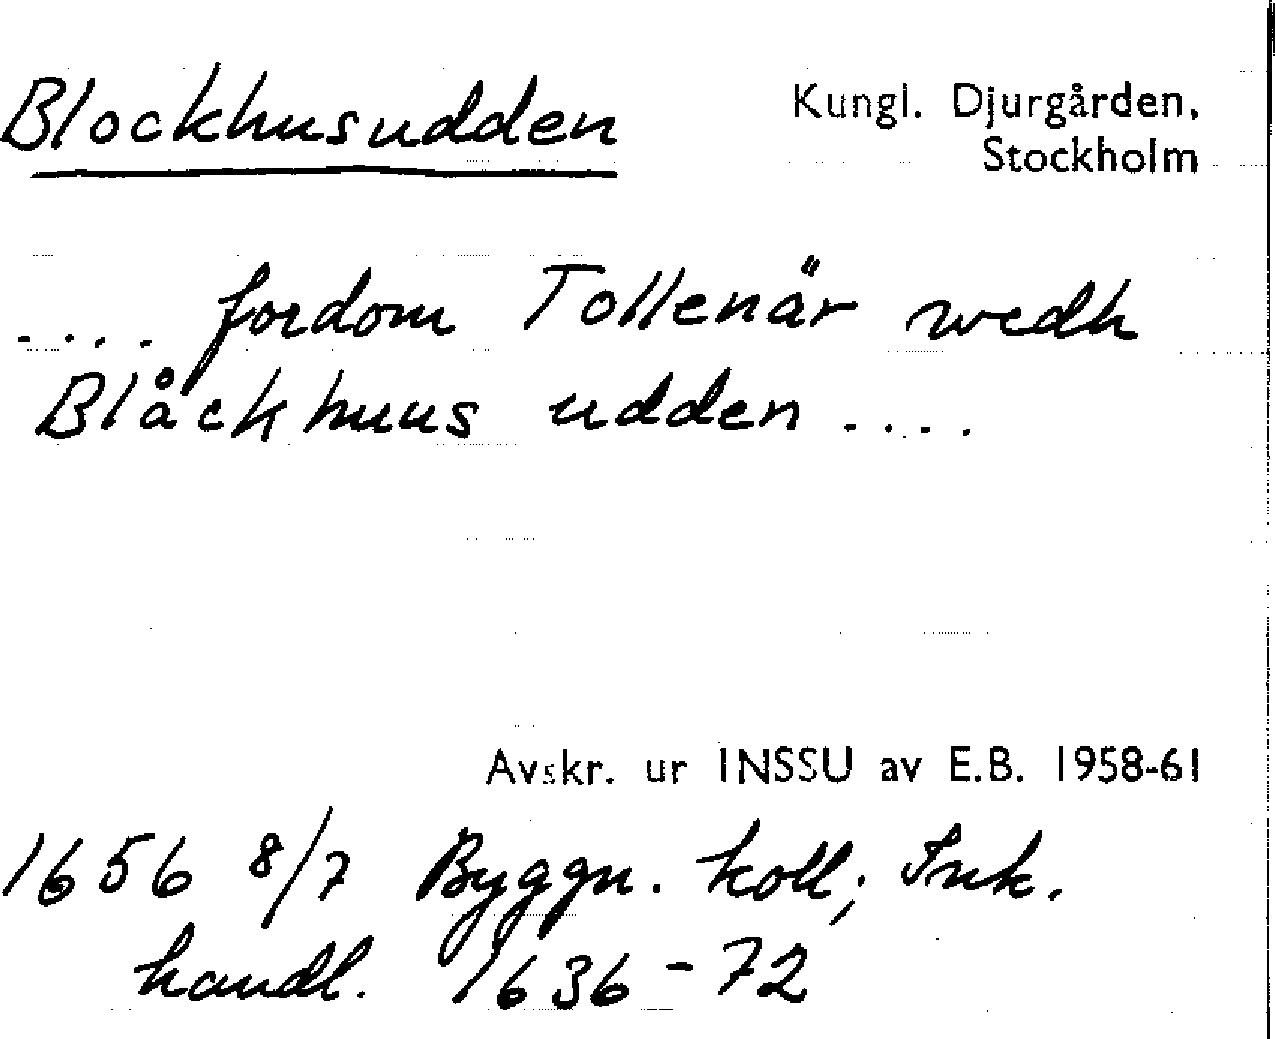 Blockhusudden
Kungl. Djurgården,
Stockholm
.... fordom Tollenär wedh
Blåckhuus udden ....
Avskr. ur INSSU av E.B. 1958-61
1656 8/7 Byggn. koll; Ink.
handl. 1636-72